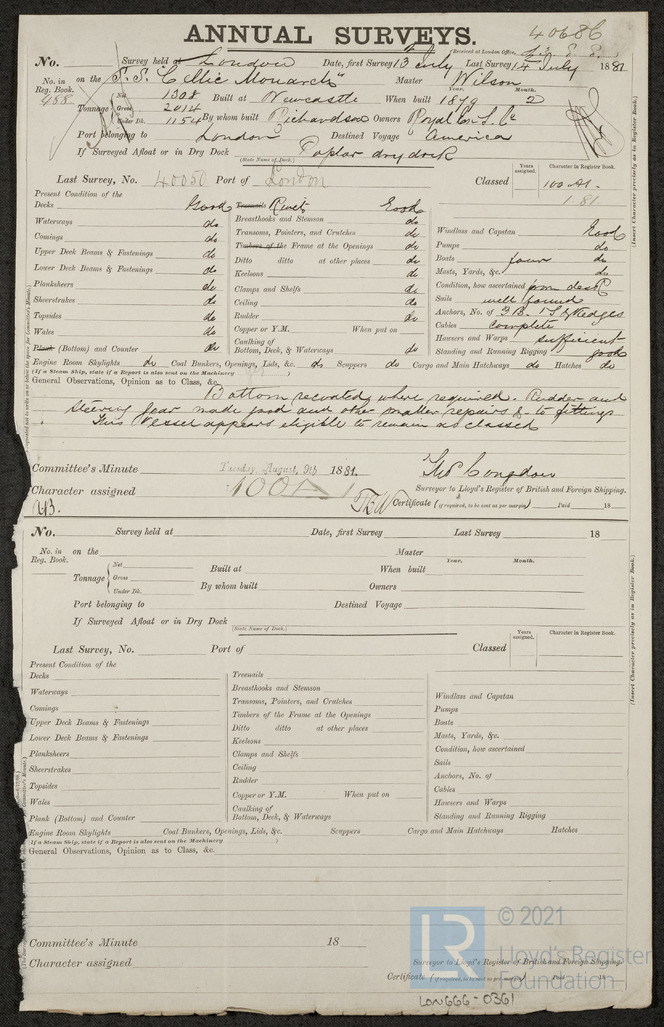 ANNUAL SURVEYS. 40686
(Received at London Office,
No. Survey held at London Date, first Survey 13th July Last Survey 14 July 1881
No. in Reg. Book. on the S.S. "Celtic Monarch" Master Wilson
488 Tonnage { Net 1308 Built at Newcastle When built 1879 Year. Month. 2
Gross 2014
Under Dk. 1154 By whom built Richardson Owners Royal Ex. S. Co
Port belonging to London Destined Voyage America
If Surveyed Afloat or in Dry Dock Poplar dry dock
(State Name of Dock.)
Last Survey, No. 40050 Port of London Classed Years assigned. Character in Register Book.
100 A1.
1.81.
Present Condition of the
Decks Good Treenails Rivets Good
Waterways do Breasthooks and Stemson do Windlass and Capstan Good
Comings do Transoms, Pointers, and Crutches do Pumps do
Upper Deck Beams & Fastenings do Timbers of the Frame at the Openings do Boats four do
Lower Deck Beams & Fastenings do Ditto ditto at other places do Masts, Yards, &c. do
Planksheers do Keelsons do Condition, how ascertained from deck
Sheerstrakes do Clamps and Shelfs do Sails well found
Topsides do Ceiling do Anchors, No. of 3 B. 1 S. & Kedges
Wales do Rudder do Cables complete
Plank (Bottom) and Counter do Copper or Y.M. When put on Hawsers and Warps sufficient
Caulking of Bottom, Deck, & Waterways do Standing and Running Rigging good
Engine Room Skylights do Coal Bunkers, Openings, Lids, &c. do Scuppers do Cargo and Main Hatchways do Hatches do
(If a Steam Ship, state if a Report is also sent on the Machinery )
General Observations, Opinion as to Class, &c.
Bottom recoated where required. Rudder and
steering gear made good and other smaller repairs & to fittings
This Vessel appears eligible to remain as classed
Committee's Minute Tuesday, August, 9th 1881.
Character assigned 100A1
Surveyor to Lloyd's Register of British and Foreign Shipping.
Certificate (if required, to be sent as per margin) Paid 18
(Insert Character precisely as in Register Book.)
No. Survey held at Date, first Survey Last Survey 18
No. in Reg. Book. on the Master
Tonnage { Net Built at When built Year. Month.
Gross
Under Dk. By whom built Owners
Port belonging to Destined Voyage
If Surveyed Afloat or in Dry Dock
(State Name of Dock.)
Last Survey, No. Port of Classed Years assigned. Character in Register Book.
Present Condition of the
Decks Treenails
Waterways Breasthooks and Stemson Windlass and Capstan
Comings Transoms, Pointers, and Crutches Pumps
Upper Deck Beams & Fastenings Timbers of the Frame at the Openings Boats
Lower Deck Beams & Fastenings Ditto ditto at other places Masts, Yards, &c.
Planksheers Keelsons Condition, how ascertained
Sheerstrakes Clamps and Shelfs Sails
Topsides Ceiling Anchors, No. of
Wales Rudder Cables
Plank (Bottom) and Counter Copper or Y.M. When put on Hawsers and Warps
Caulking of Bottom, Deck, & Waterways Standing and Running Rigging
Engine Room Skylights Coal Bunkers, Openings, Lids, &c. Scuppers Cargo and Main Hatchways Hatches
(If a Steam Ship, state if a Report is also sent on the Machinery )
General Observations, Opinion as to Class, &c.
Committee's Minute 18
Character assigned
Surveyor to Lloyd's Register of British and Foreign Shipping.
Certificate (if required, to be sent as per margin) Paid 18
(Insert Character precisely as in Register Book.)
LR © 2021
Lloyd's Register
Foundation
LON666-0361